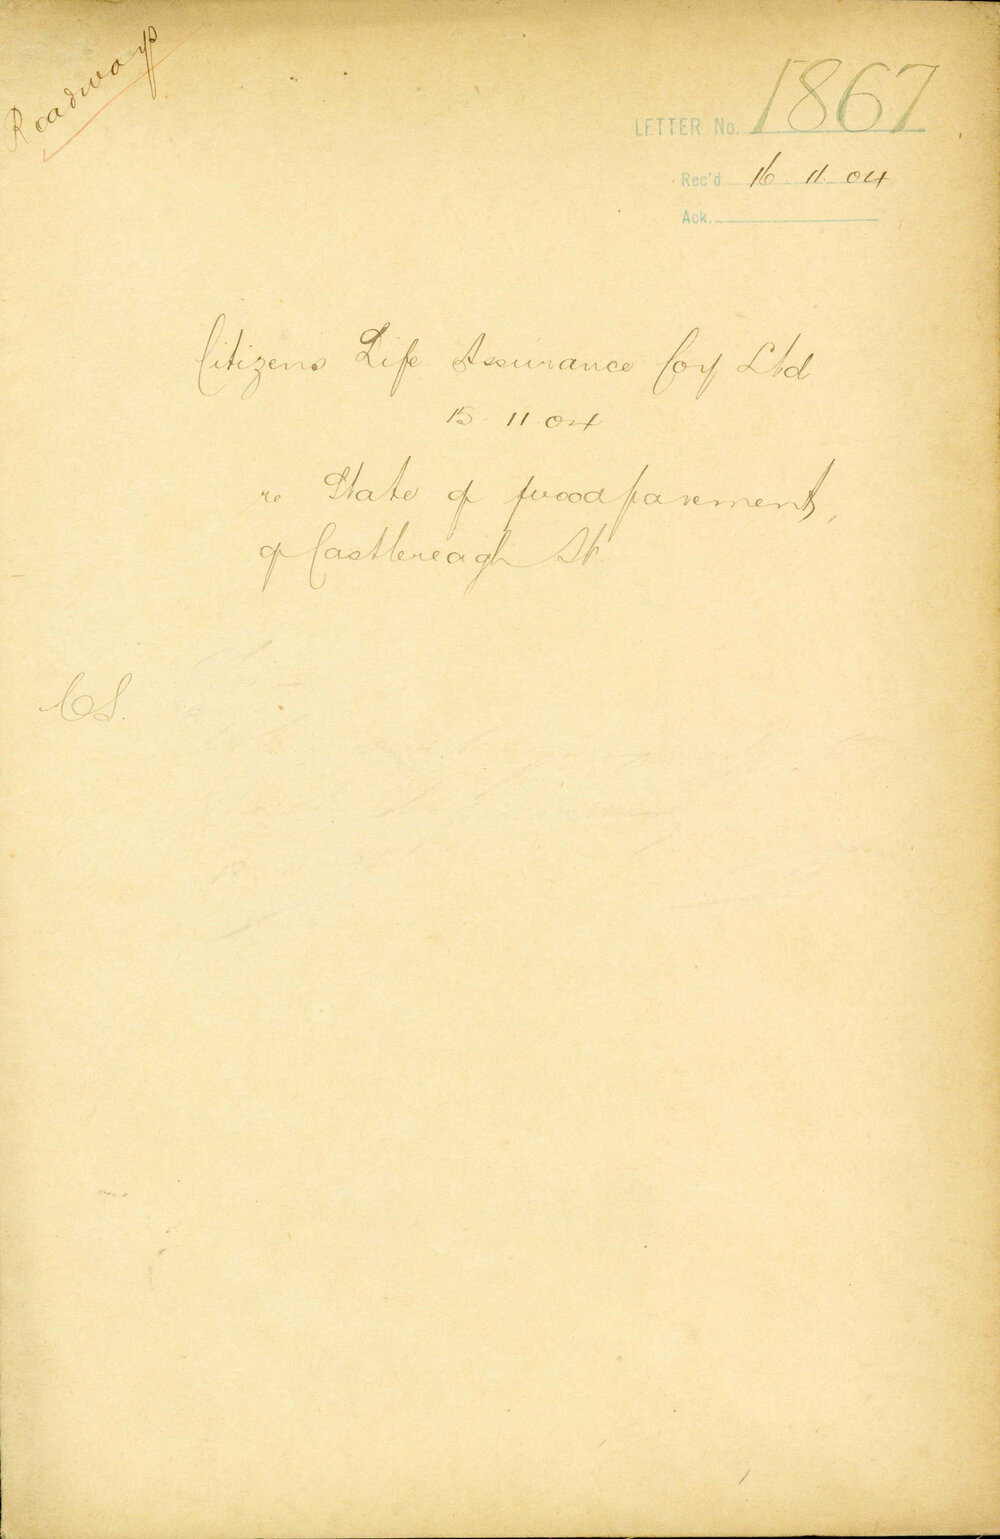 Roadways
LETTER No. 1867
Rec'd 16. 11. 04
Ack.
Citizens Life Assurance Coy Ltd
15. 11 04
re State of wood pavement,
of Castlereagh St.
CS.